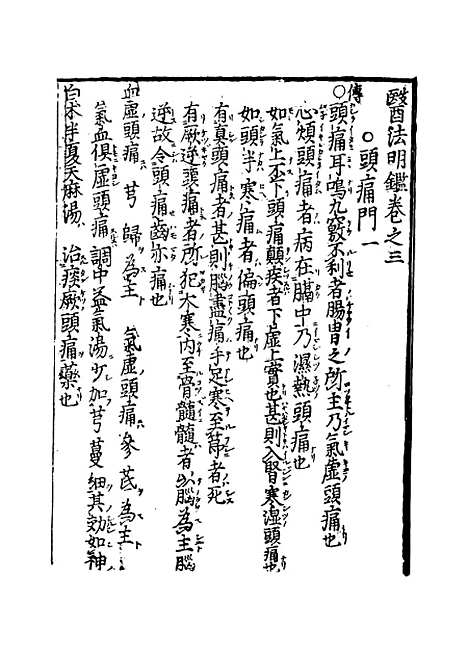 醫法明鑑卷之三
○頭痛門一
傳
○頭痛耳鳴九竅不利者腸胃之所主乃氣虛頭痛也
心煩頭痛者病在膈中乃濕熱頭痛也
如氣上不下頭痛巓疾者下虛上實也甚則入腎寒湿頭痛也
如頭半寒痛者偏頭痛也
有真頭痛者甚則腦盡痛手足寒至節者死
有厥逆頭痛者所犯大寒内至骨髓髓者以腦為主腦
逆故令頭痛齒亦痛也
血虛頭痛 芎歸為主 氣虛頭痛 參芪為主
氣血俱虛頭痛 調中益氣湯少加芎蔓細其効如神
白朮半夏天麻湯 治痰厥頭痛藥也